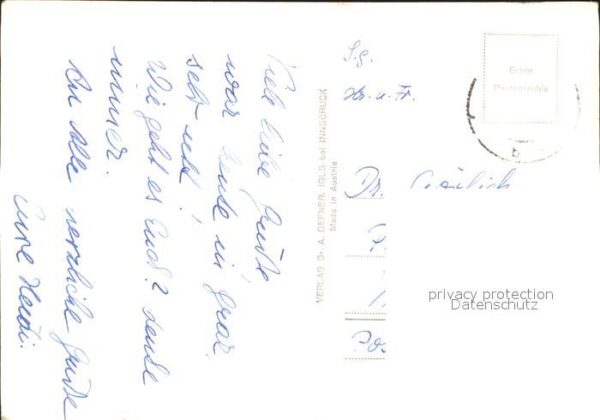 Viele liebe Grüße
war heute in Graz
seit
Wie geht es Euch? denke
immer.
An Alle herzliche Grüße
Eure Heidi.
VERLAG Dr. A. DEFNER, IGLS bei INNSBRUCK
Made in Austria
S.g.
Hr. u. Fr.
Dr.
Echte
Photographie
privacy protection
Datenschutz